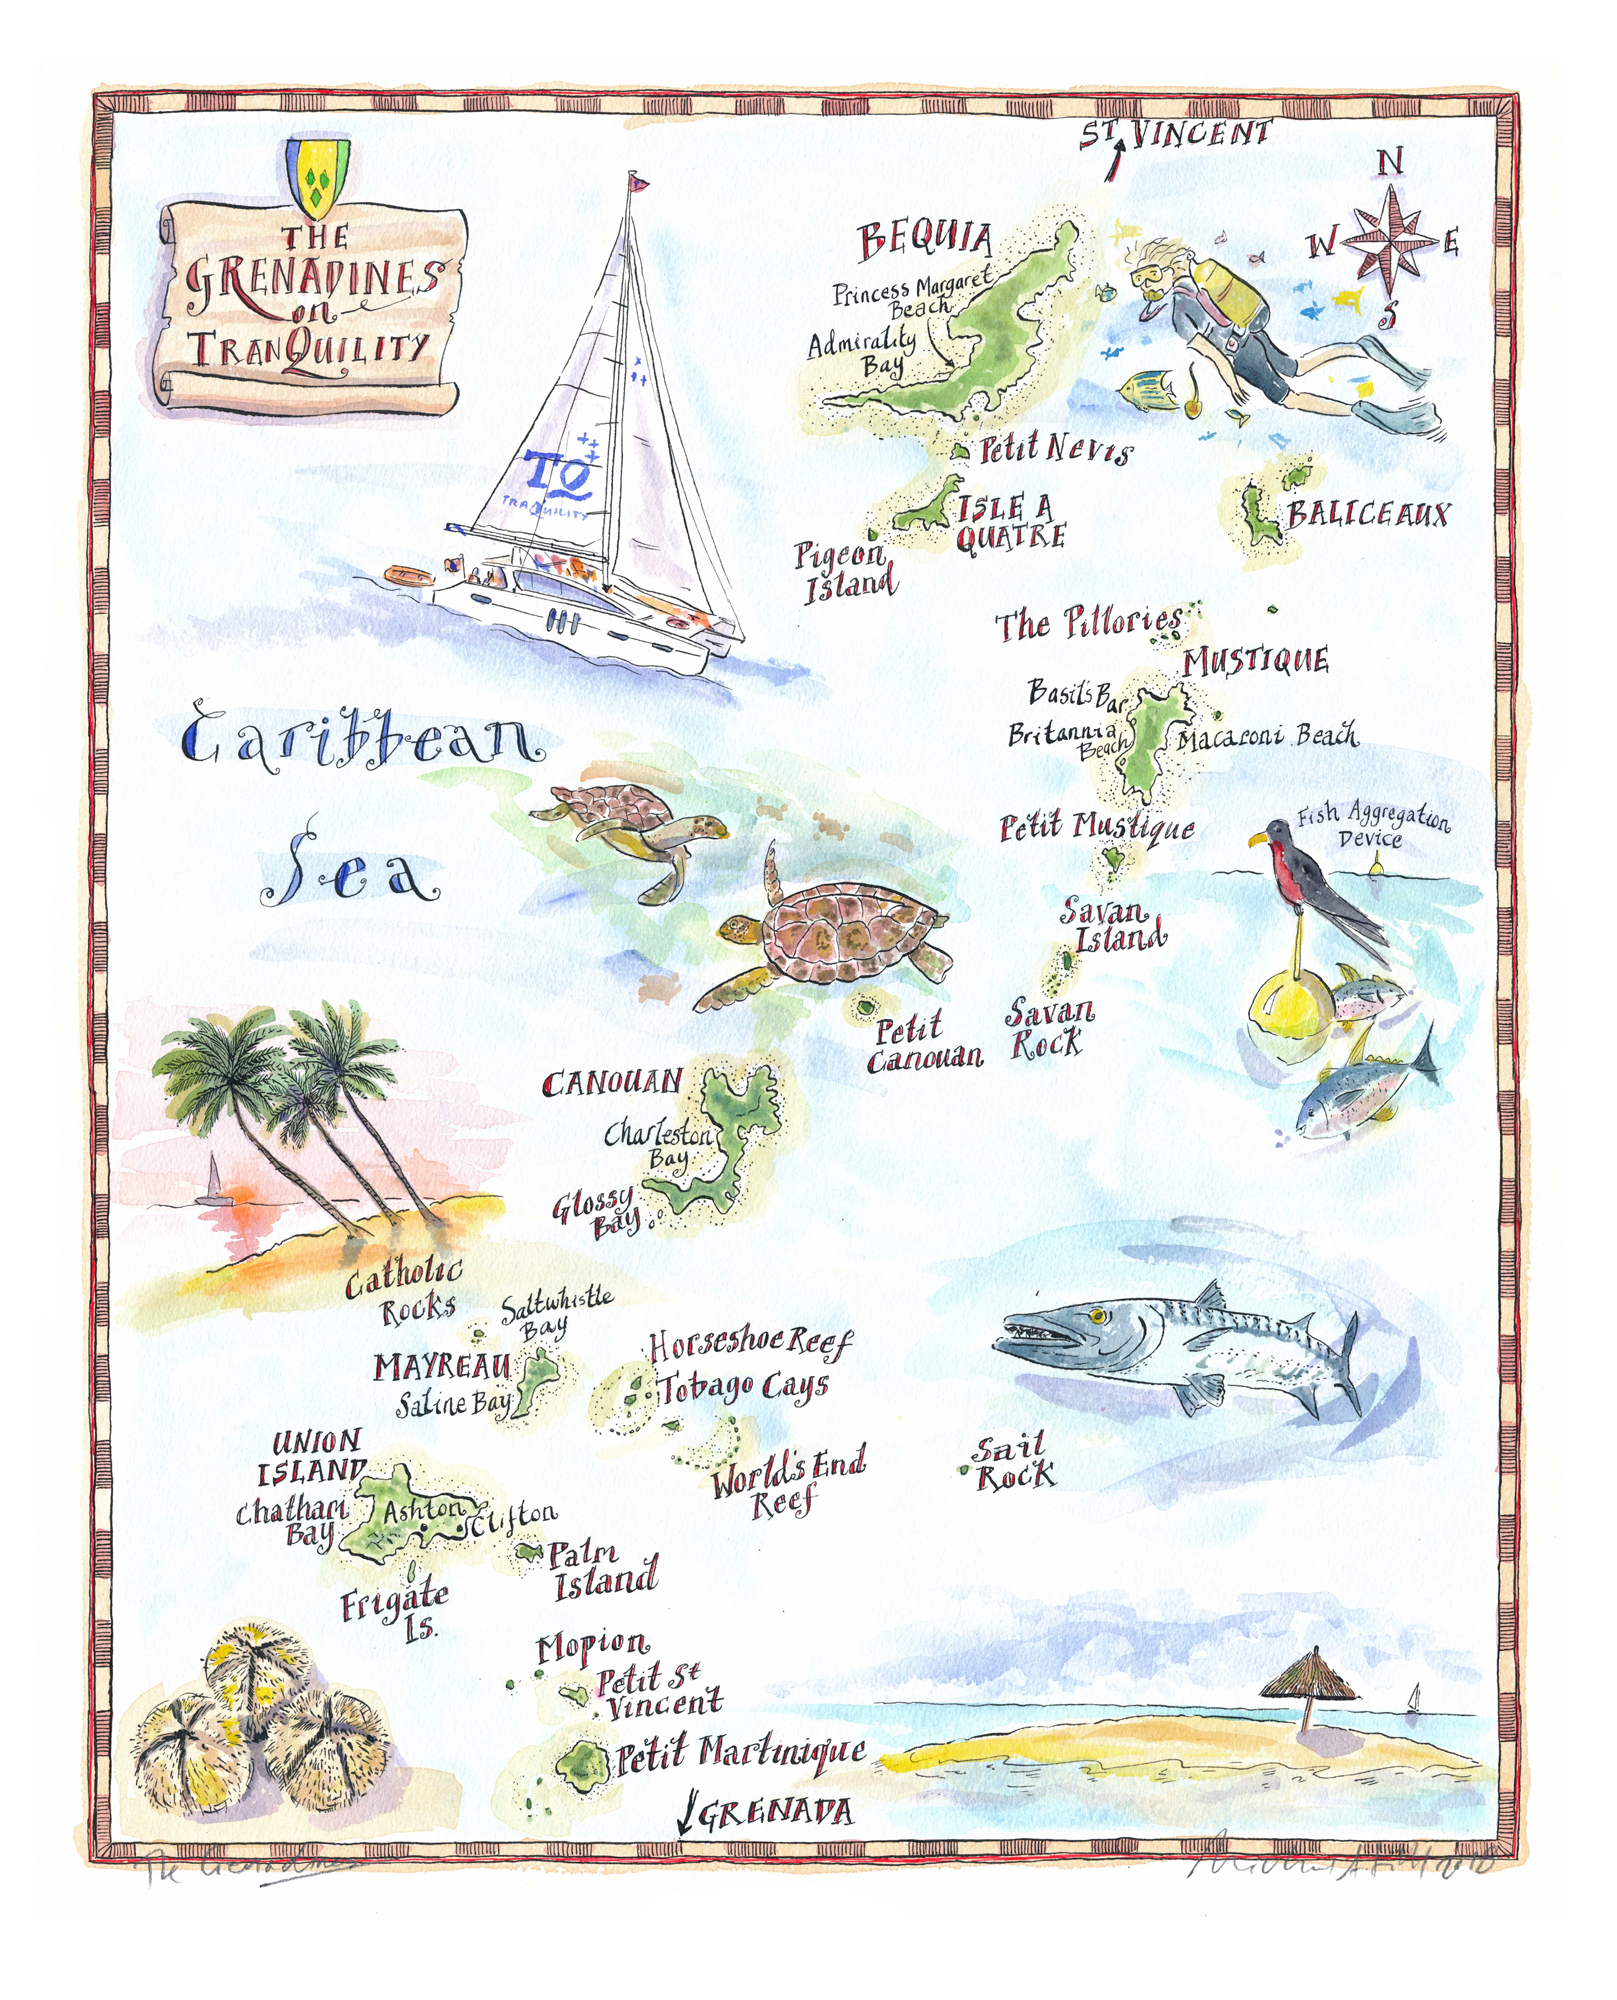 ST. VINCENT
N
W
E
S
THE
GRENADINES
on
TRANQUILITY
BEQUIA
Princess Margaret
Beach
Admirality
Bay
TQ
TRAQUILITY
Petit Nevis
ISLE A
QUATRE
BALICEAUX
Pigeon
Island
The Pillories
MUSTIQUE
Basil's Bar
Britannia
Beach
Macaroni Beach
Caribbean
Sea
Petit Mustique
Fish Aggregation
Device
Savan
Island
Savan
Rock
Petit
Canouan
CANOUAN
Charleston
Bay
Glossy
Bay
Catholic
Rocks
Saltwhistle
Bay
MAYREAU
Saline Bay
Horseshoe Reef
Tobago Cays
World's End
Reef
Sail
Rock
UNION
ISLAND
Chatham
Bay
Ashton
Clifton
Palm
Island
Frigate
Is.
Mopion
Petit St
Vincent
Petit Martinique
GRENADA
The Grenadines